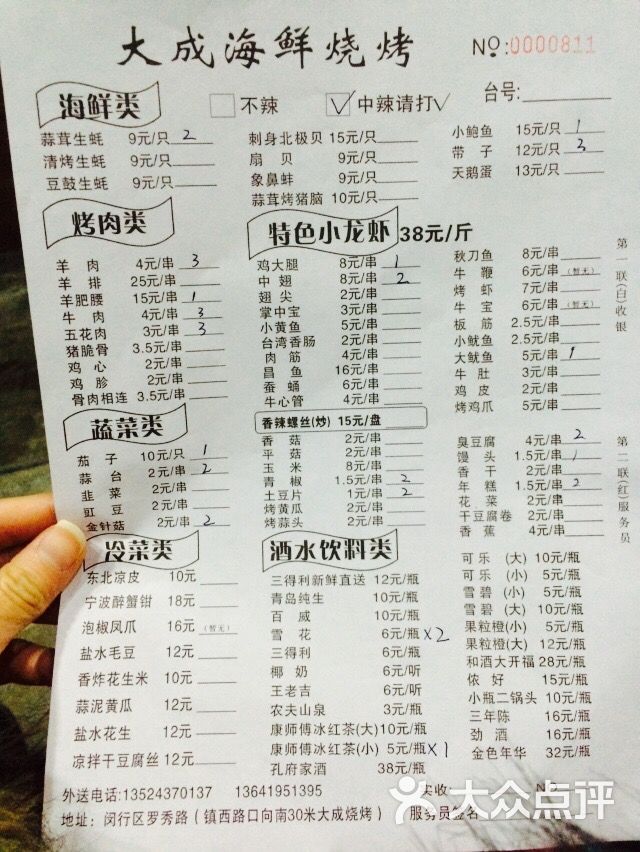 大成海鲜烧烤 NO:0000811
海鲜类 不辣 √ 中辣请打√ 台号:
蒜茸生蚝 9元/只 2 刺身北极贝 15元/只 小鲍鱼 15元/只 1
清烤生蚝 9元/只 扇贝 9元/只 带子 12元/只 3
豆鼓生蚝 9元/只 象鼻蚌 9元/只 天鹅蛋 13元/只
蒜茸烤猪脑 10元/只
烤肉类 特色小龙虾 38元/斤
羊肉 4元/串 3 鸡大腿 8元/串 1 秋刀鱼 8元/串
羊排 25元/串 中翅 8元/串 2 牛鞭 6元/串 (暂无)
羊肥腰 15元/串 1 翅尖 2元/串 烤虾 7元/串
牛肉 4元/串 3 掌中宝 4元/串 牛宝 6元/串 (暂无)
五花肉 3元/串 3 小黄鱼 5元/串 板筋 2.5元/串
猪脆骨 3.5元/串 台湾香肠 5元/串 小鱿鱼 2.5元/串
鸡心 2元/串 肉筋 4元/串 大鱿鱼 5元/串 1
鸡胗 2元/串 昌鱼 16元/串 牛肚 3元/串
骨肉相连 3.5元/串 蚕蛹 6元/串 鸡皮 2元/串
牛心管 4元/串 烤鸡爪 5元/串
蔬菜类 香辣螺丝(炒) 15元/盘
茄子 10元/只 1 香菇 2元/串 臭豆腐 4元/串 2
蒜台 2元/串 2 平菇 2元/串 馒头 1.5元/串 1
韭菜 2元/串 玉米 8元/串 香干 2元/串
豇豆 2元/串 青椒 1.5元/串 2 年糕 1.5元/串 2
金针菇 2元/串 2 土豆片 1元/串 2 花菜 2元/串
烤黄瓜 2元/串 干豆腐卷 2元/串
烤蒜头 2元/串 香蕉 4元/串
冷菜类 酒水饮料类
东北凉皮 10元 三得利新鲜直送 12元/瓶 可乐(大) 10元/瓶
宁波醉蟹钳 18元 青岛纯生 10元/瓶 可乐(小) 5元/瓶
泡椒凤爪 16元 (暂无) 百威 10元/瓶 雪碧(小) 5元/瓶
盐水毛豆 12元 雪花 6元/瓶 ×2 雪碧(大) 10元/瓶
香炸花生米 10元 三得利 6元/瓶 果粒橙(小) 5元/瓶
蒜泥黄瓜 12元 椰奶 6元/听 果粒橙(大) 12元/瓶
盐水花生 12元 王老吉 6元/听 和酒大开福 28元/瓶
凉拌干豆腐丝 12元 农夫山泉 3元/瓶 侬好 15元/瓶
康师傅冰红茶(大) 10元/瓶 小瓶二锅头 10元/瓶
康师傅冰红茶(小) 5元/瓶 ×1 三年陈 16元/瓶
孔府家酒 38元/瓶 劲酒 16元/瓶
金色年华 32元/瓶
第一联(白)收银
第二联(红)服务员
外送电话:13524370137 13641951395 实收
地址:闵行区罗秀路(镇西路口向南30米大成烧烤) 服务员签名
大众点评